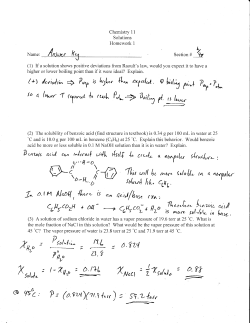 Chemistry 11
Solutions
Homework 1
Name: Answer Key Section #
(1) If a solution shows positive deviations from Raoult's law, would you expect it to have a
higher or lower boiling point than if it were ideal? Explain.
(+) deviation → Psoln is higher than expected. @ boiling point Psoln = Patm
so a lower T required to reach Patm → Boiling pt. is lower
(2) The solubility of benzoic acid (find structure in textbook) is 0.34 g per 100 mL in water at 25
°C and is 10.0 g per 100 mL in benzene (C6H6) at 25 °C. Explain this behavior. Would benzoic
acid be more or less soluble in 0.1 M NaOH solution than it is in water? Explain.
Benzoic acid can interact with itself to create a nonpolar structure:
This will be more soluble in a nonpolar
solvent like C6H6.
In 0.1 M NaOH, there is an acid/base rxn:
C6H5CO2H + OH⁻ → C6H5CO2⁻ + H2O Therefore benzoic acid
is more soluble in base.
(3) A solution of sodium chloride in water has a vapor pressure of 19.6 torr at 25 °C. What is
the mole fraction of NaCl in this solution? What would be the vapor pressure of this solution at
45 °C? The vapor pressure of water is 23.8 torr at 25 °C and 71.9 torr at 45 °C.
XH2O = Psolution / P°H2O = 19.6 / 23.8 = 0.824
Xsolute = 1 - XH2O = 0.176 XNaCl = ½ Xsolute = 0.88
@ 45°C: P = (0.824)(71.9 torr) = 59.2 torr